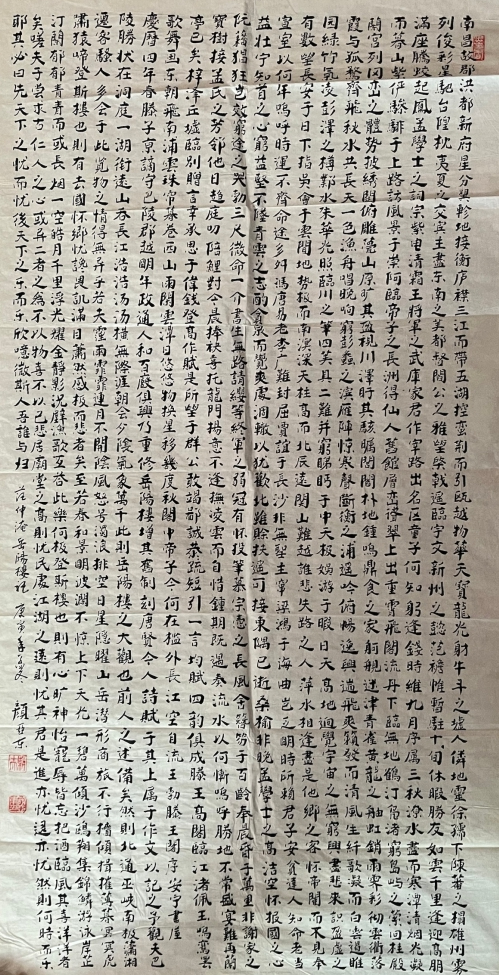 南昌故郡洪都新府星分翼軫地接衡廬襟三江而帶五湖控蠻荆而引甌越物華天寶龍光射牛斗之墟人傑地靈徐孺下陳蕃之榻雄州霧
列俊彩星馳台隍枕夷夏之交賓主盡東南之美都督閻公之雅望棨戟遥臨宇文新州之懿范襜帷暫駐十旬休暇勝友如雲千里逢迎高朋
滿座騰蛟起鳳孟學士之詞宗紫電清霜王將軍之武庫家君作宰路出名區童子何知躬逢餞時維九月序屬三秋潦水盡而寒潭清煙光凝
而暮山紫儼驂騑于上路訪風景于崇阿臨帝子之長洲得仙人舊館層巒聳翠上出重霄飛閣流丹下臨無地鶴汀鳧渚窮島嶼之縈回桂殿
蘭宫列岡巒之體勢披綉闥俯雕甍山原曠其盈視川澤盱其駭矚閭閻扑地鐘鳴鼎食之家舸艦迷津青雀黄龍之舳虹銷雨霽彩徹雲衢落
霞與孤鶩齊飛秋水共長天一色漁舟唱晚响窮彭蠡之濱雁陣驚寒聲斷衡之浦遥吟俯暢逸興遄飛爽籟發而清風生纤歌凝而白雲遏睢
園綠竹氣凌彭澤之樽鄴水朱華光照臨川之筆四美具二難并窮睇眄于中天极娛游于暇日天高地迥覺宇宙之無窮興盡悲來識盈虛之
有數望長安于日下指吳會于雲間地勢极而南溟深天柱高而北辰遠關山難越誰悲失路之人萍水相逢盡是他鄉之客懷帝閽而不見奉
宣室以何年嗚呼時運不齊命途多舛馮唐易老李广難封屈賈誼于長沙非無聖主竄梁鴻于海曲豈乏明時所賴君子安貧達人知命老當
益壮宁知首之心窮益堅不墜青雲之志酌貪泉而覺爽處涸轍以猶歡北雖賒扶搖可接東隅已逝桑榆非晚孟學士之高洁空懷报國之心
阮籍猖狂豈效窮途之哭勃三尺微命一介書生無路請纓等終軍之弱冠有懷投筆慕宗愨之長風舍簪笏于百齡奉晨昏于萬里非謝家之
寶樹接孟氏之芳鄰他日趨庭叨陪鯉對今晨捧袂喜托龍門楊意不逢撫凌雲而自惜鍾期既遇奏流水以何慚嗚呼勝地不常盛宴難再蘭
亭已矣梓澤丘墟臨别贈言幸承恩于偉餞登高作賦是所望于群公敢竭鄙誠恭疏短引一言均賦四韵俱成滕王高閣臨江渚佩玉鳴鸞罷
歌舞画東朝飛南浦雲珠帘暮卷西山雨閑雲潭日悠悠物换星移幾度秋閣中帝子今何在檻外長江空自流王勃滕王閣序 安宁書屋
慶曆四年春滕子京謫守巴陵郡越明年政通人和百廢俱興乃重修岳陽樓增其舊制刻唐賢今人詩賦于其上属予作文以記之予觀夫巴
陵勝状在洞庭一湖銜遠山吞長江浩浩湯湯横無際涯朝會夕陰氣象萬千此則岳陽樓之大觀也前人之述備矣然則北通巫峡南极瀟湘
遷客騷人多會于此覽物之情得無异乎若夫霪雨霏霏連月不開陰風怒号濁浪排空日星隱曜山岳潜形商旅不行檣傾楫摧薄暮冥冥虎
嘯猿啼登斯樓也則有去國懷鄉忧讒畏譏滿目潇然感极而悲者矣至若春和景明波瀾不惊上下天光一碧萬傾沙鷗翔集錦鱗游泳岸芷
汀蘭郁郁青青而或長烟一空皓月千里浮光耀金静影沉璧漁歌互答此樂何极登斯樓也則有心旷神怡寵辱皆忘把酒臨風其喜洋洋者
矣嗟夫予嘗求古仁人之心或异二者之爲不以物喜不以己悲居廟堂之高則忧民處江湖之遠則忧其君是進亦忧退亦忧然則何時而乐
耶其必曰先天下之忧而忧後天下之乐而乐欤噫微斯人吾誰与归 范仲淹岳陽樓記